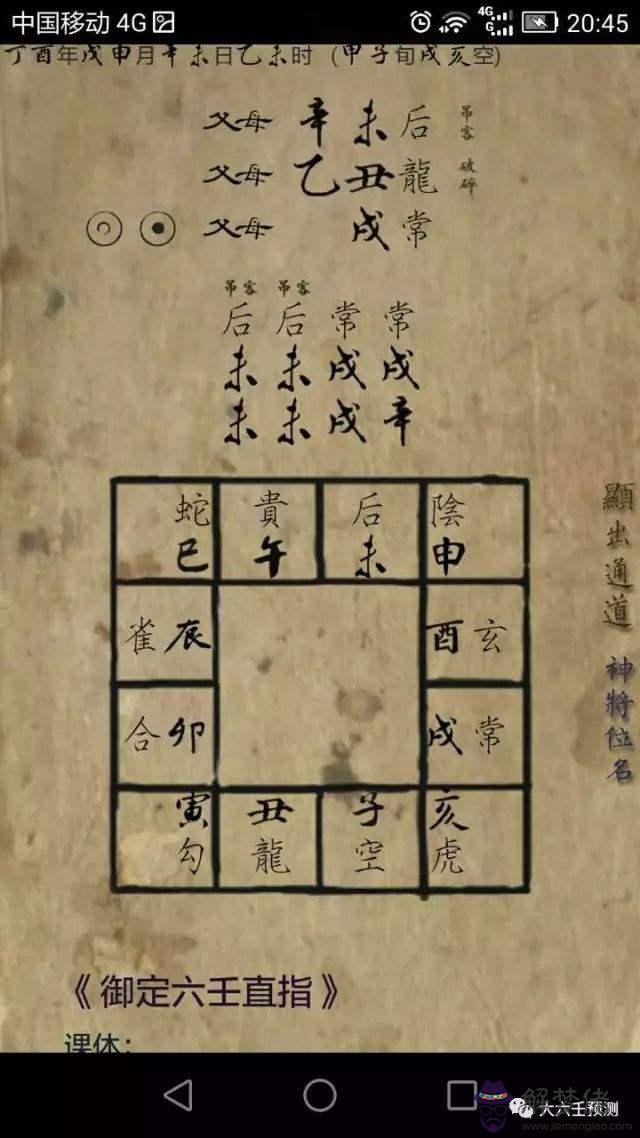 中国移动 4G 4G G 20:45
丁酉年戊申月辛未日乙未时 (甲子旬戌亥空)
父母 辛 未 后 吊客
父母 乙 丑 龍 破碎
父母 戌 常
吊客 吊客
后 后 常 常
未 未 戌 戌
未 未 戌 辛
蛇 貴 后 陰
巳 午 未 申
雀 辰 酉 玄
合 卯 戌 常
寅 丑 子 亥
勾 龍 空 虎
顯出通道
神將位名
《御定六壬直指》
课体:
大六壬预测
解梦佬
www.jiemenglao.com